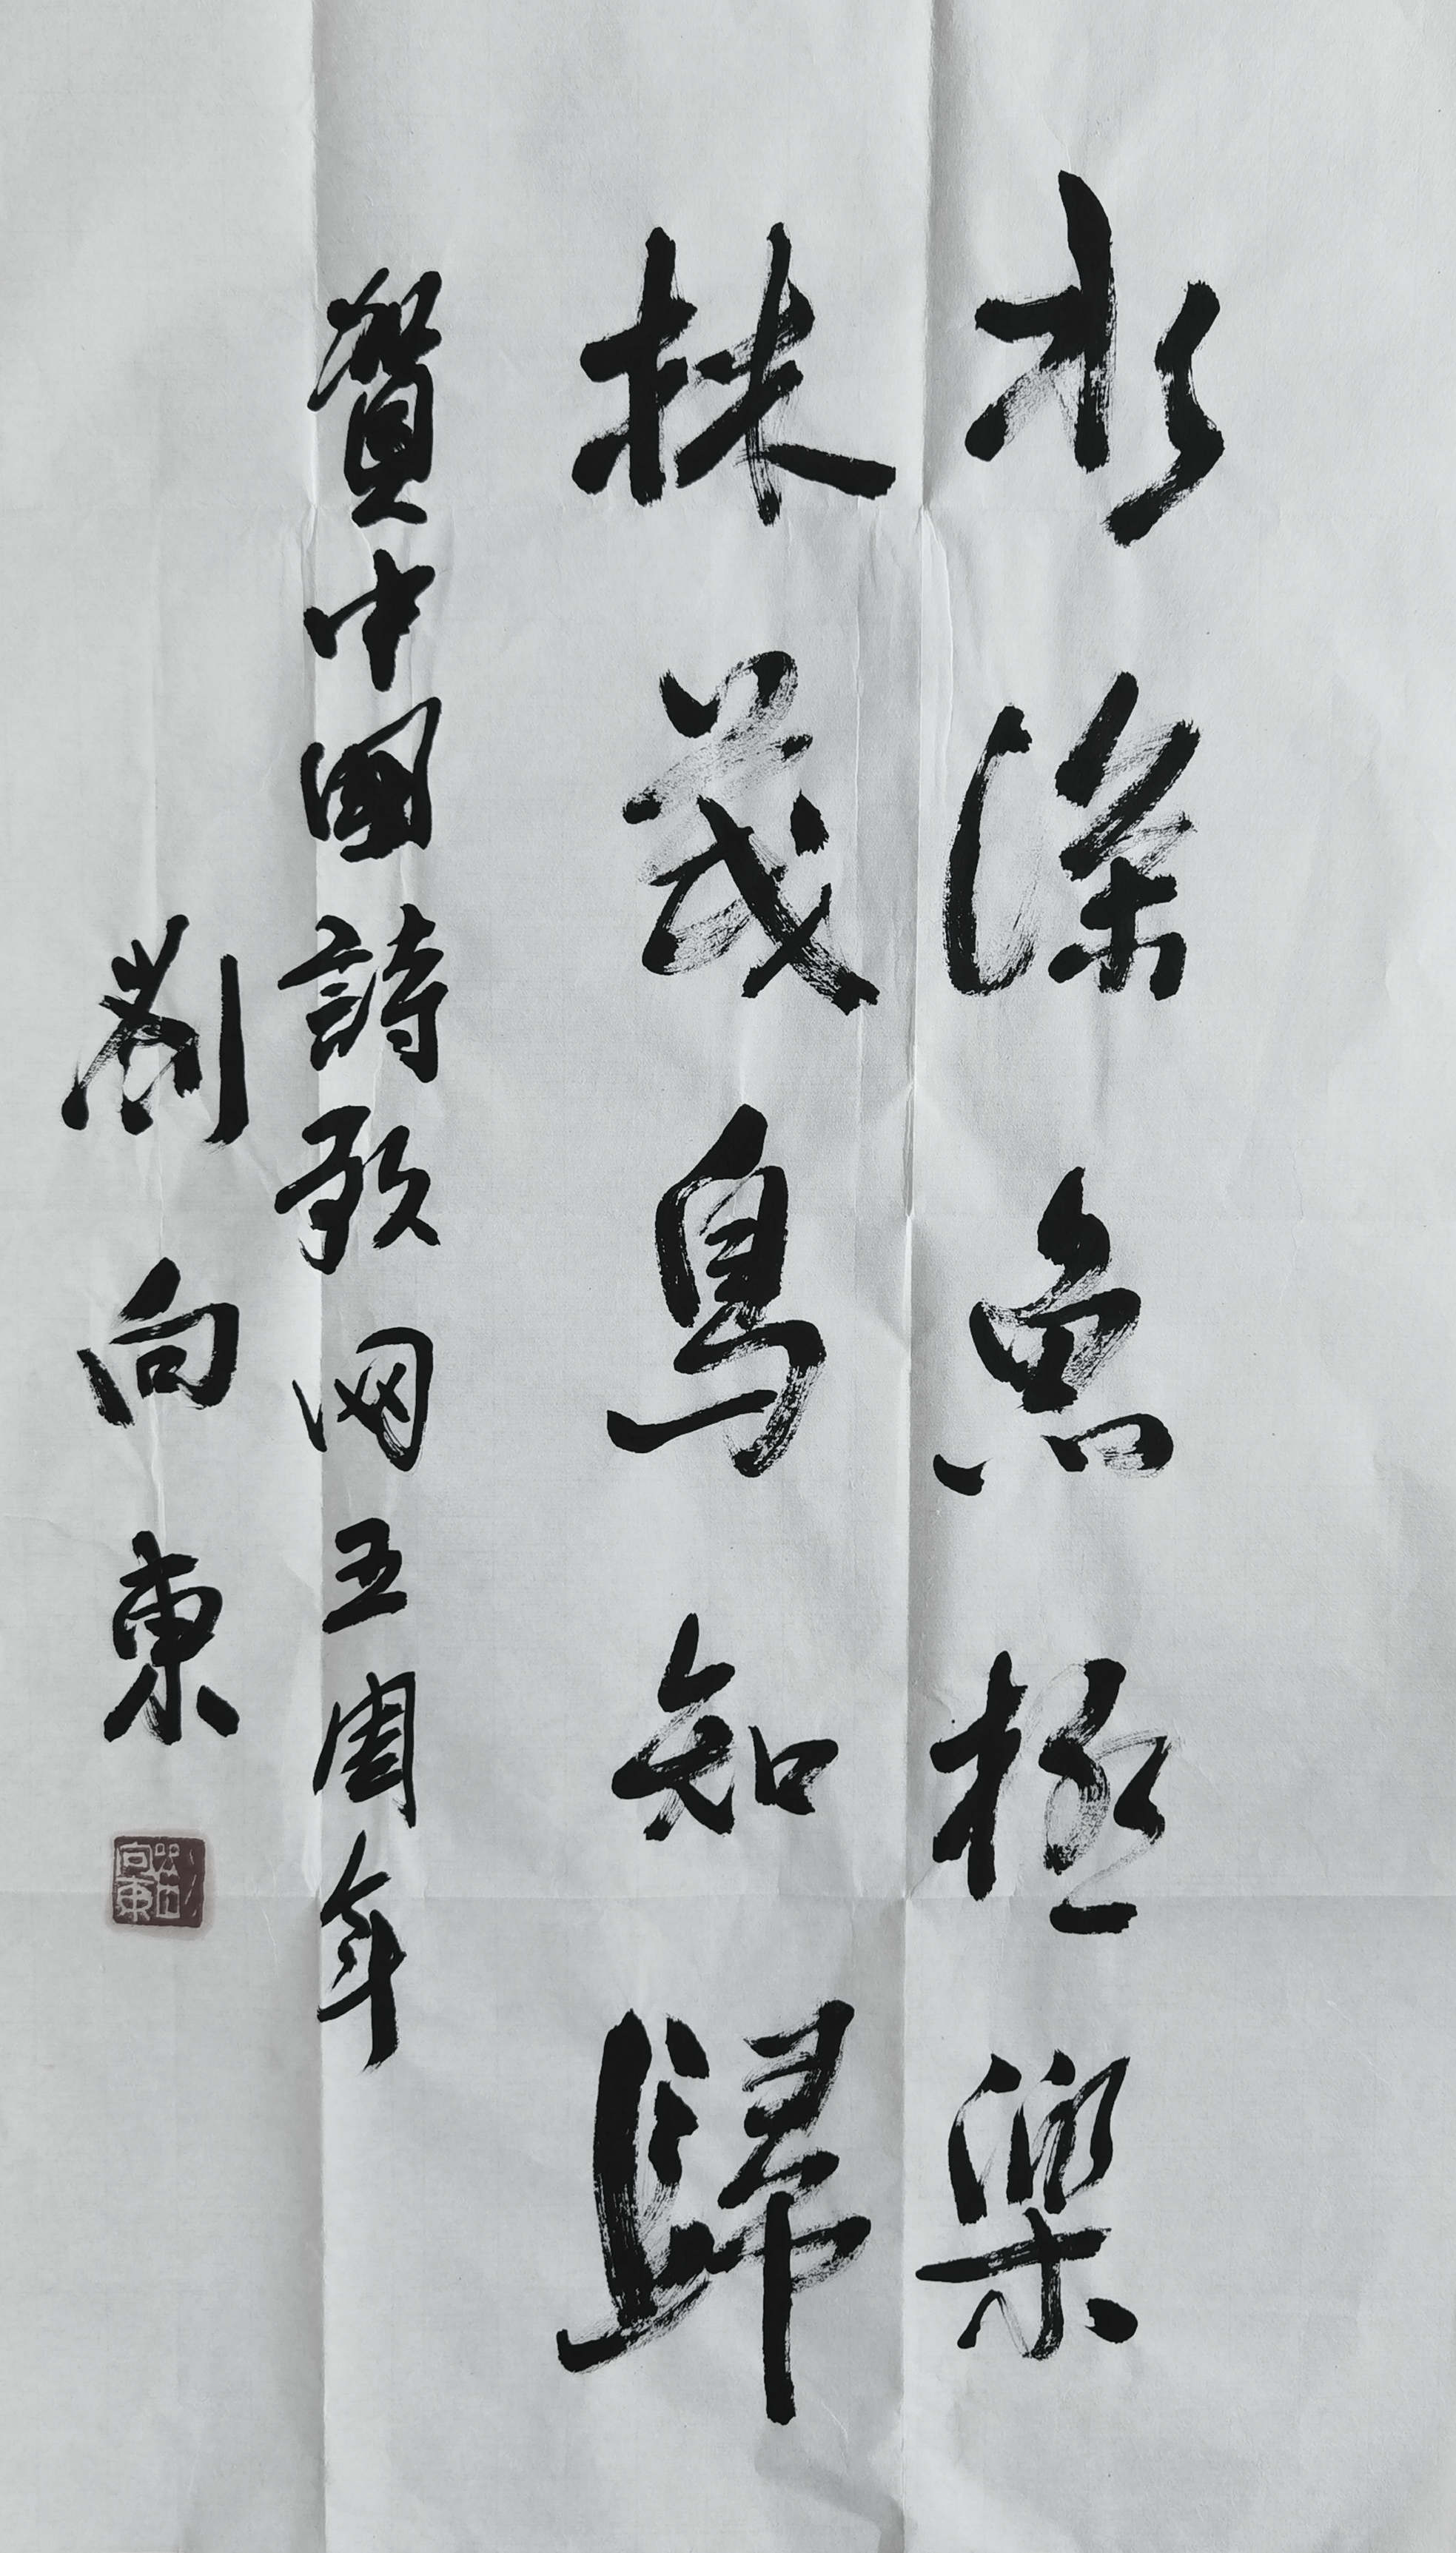 水深魚極樂
林茂鳥知歸
賀中國詩歌网五周年
劉向東
劉向東